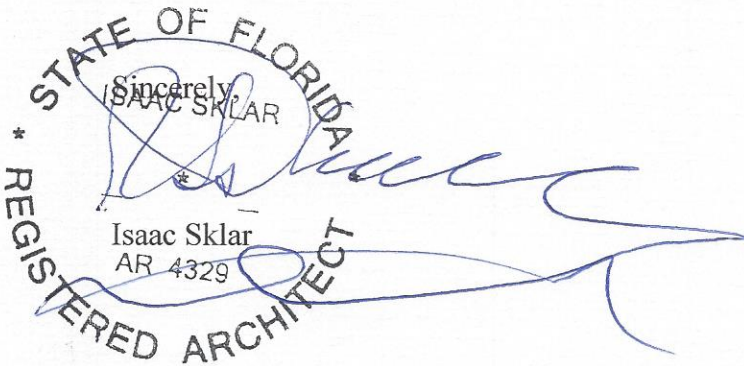 STATE OF FLORIDA
Sincerely,
ISAAC SKLAR
Isaac Sklar
AR 4329
* REGISTERED ARCHITECT *